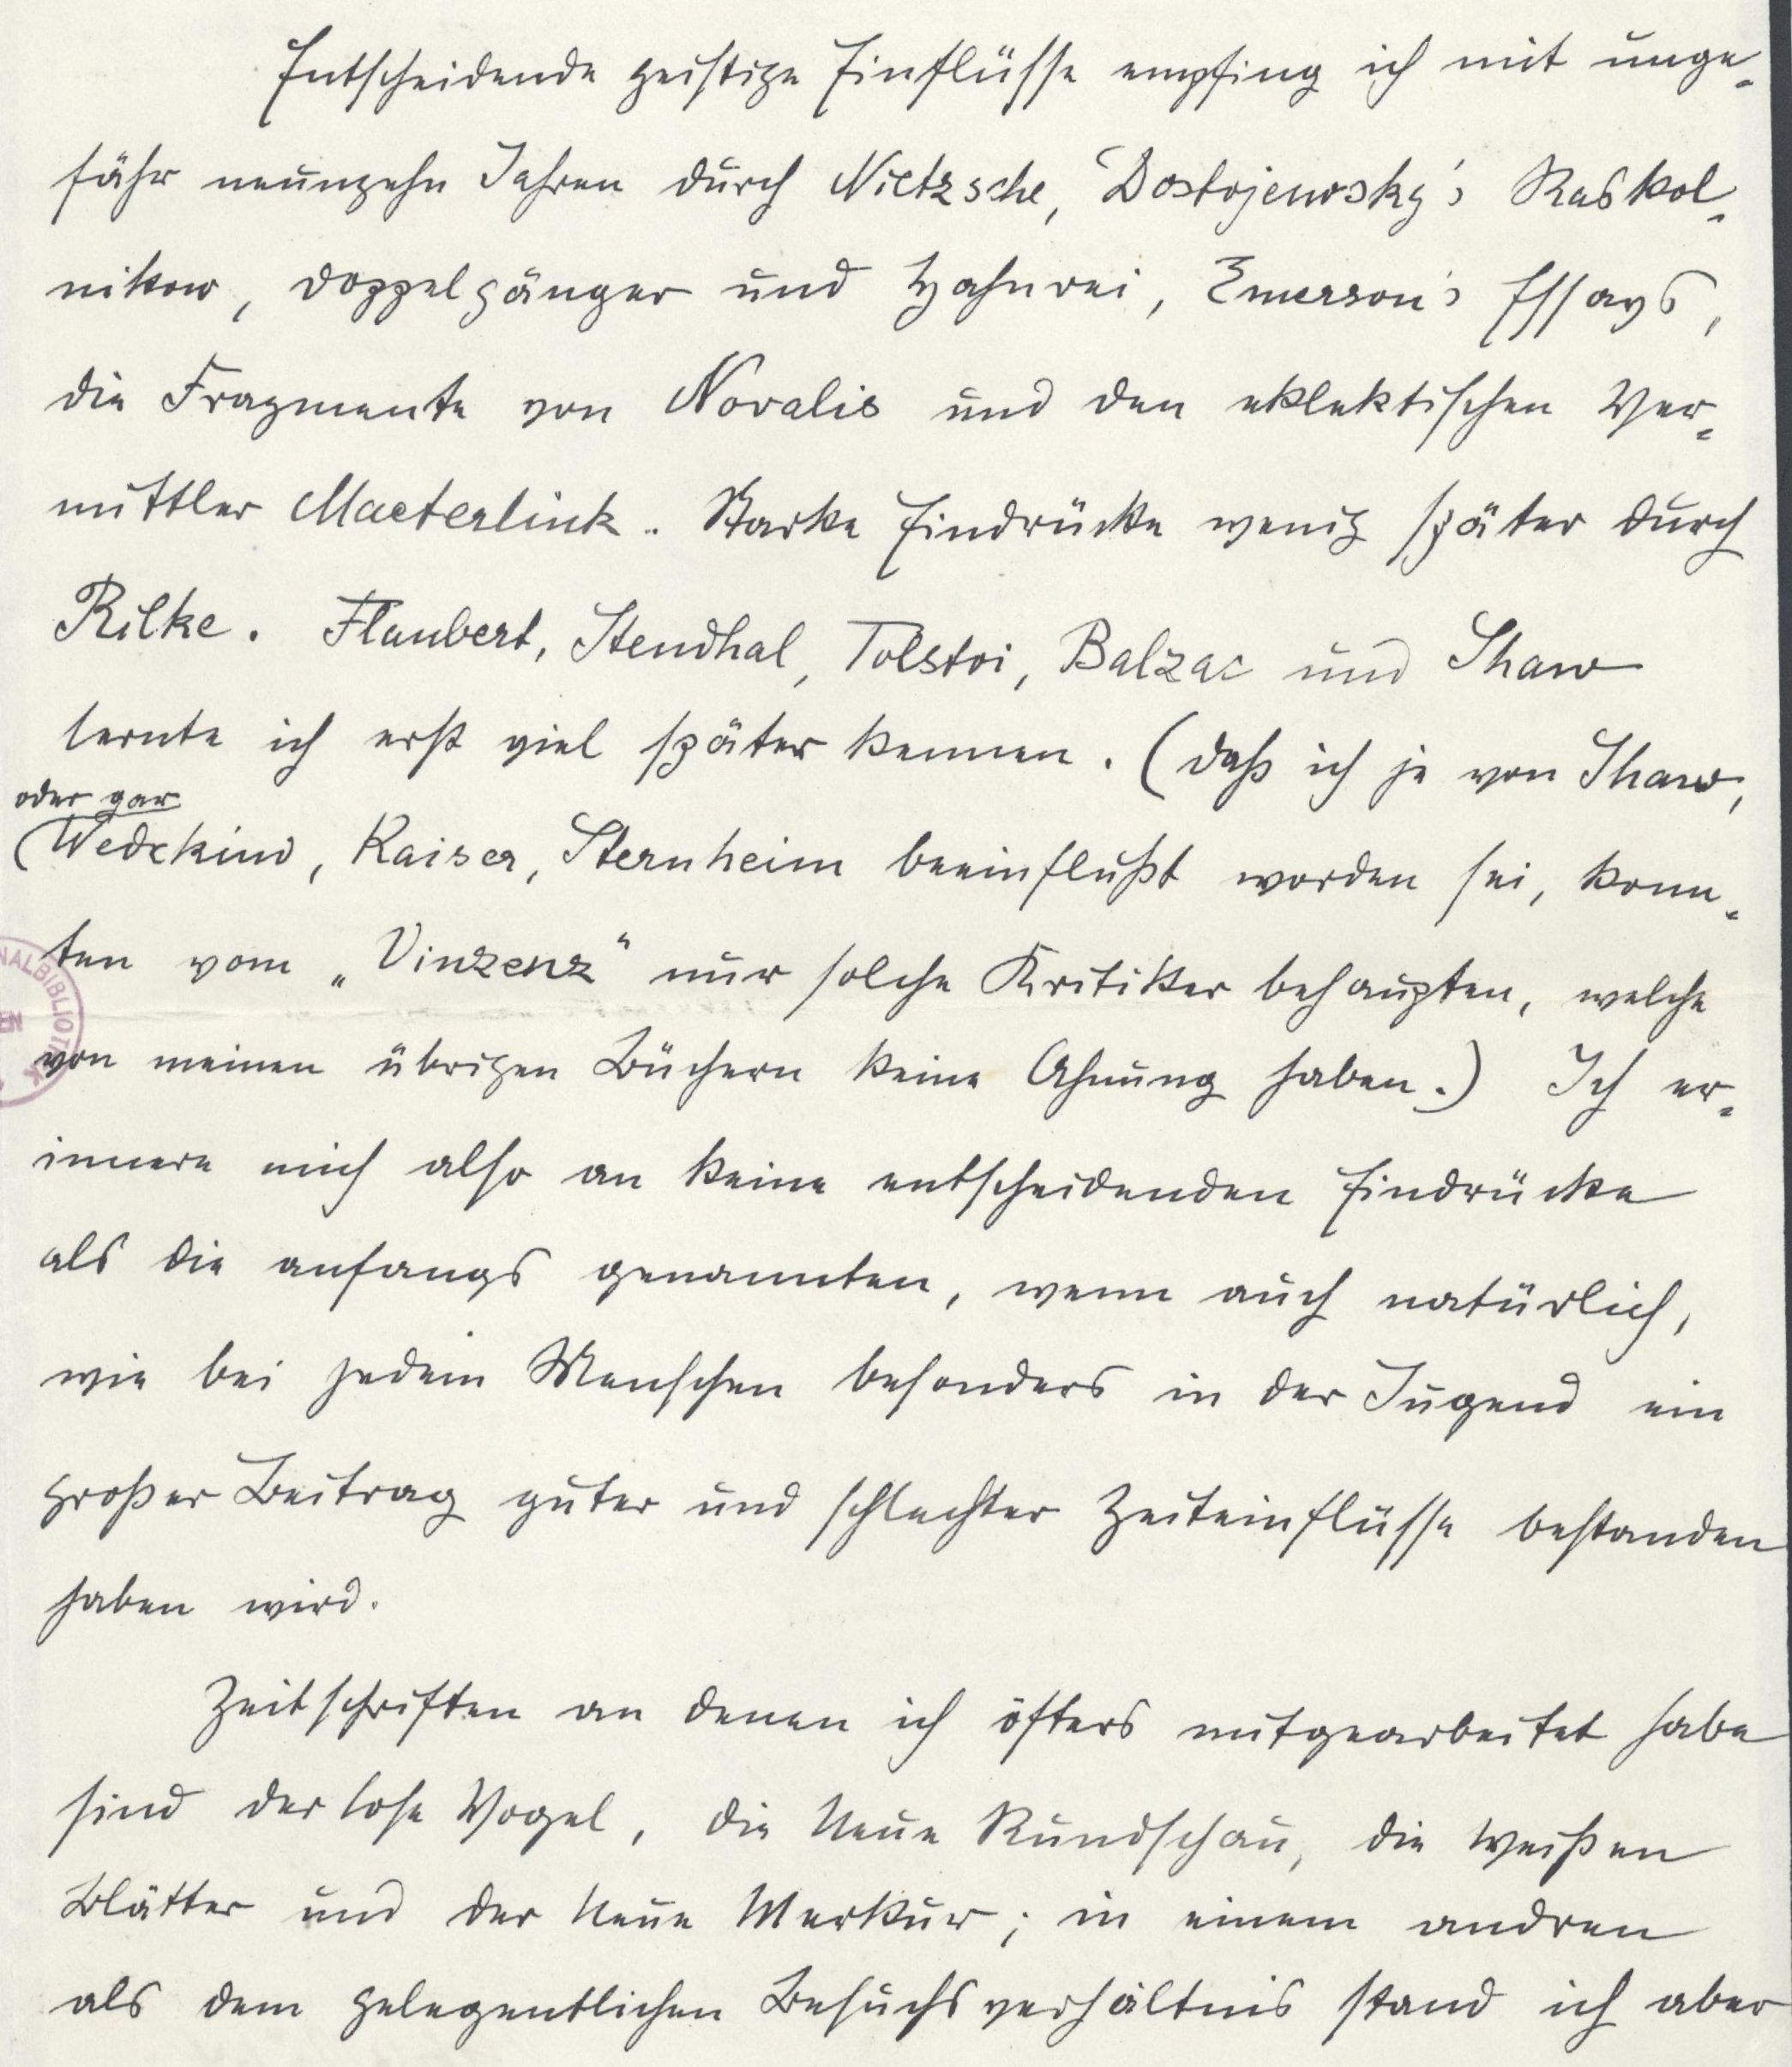 Entscheidende geistige Einflüsse empfing ich mit unge-
fähr neunzehn Jahren durch Nietzsche, Dostojewsky's Raskol-
nikow, Doppelgänger und Hahnrei, Emerson's Essays,
die Fragmente von Novalis und den eklektischen Ver-
mittler Maeterlink. Starke Eindrücke wenig später durch
Rilke. Flaubert, Stendhal, Tolstoi, Balzac und Shaw
lernte ich erst viel später kennen. (Daß ich je von Shaw,
oder gar
Wedekind, Kaiser, Sternheim beeinflußt worden sei, konn-
ten vom „Vinzenz“ nur solche Kritiker behaupten, welche
von meinen übrigen Büchern keine Ahnung haben.) Ich er-
innere mich also an keine entscheidenden Eindrücke
als die anfangs genannten, wenn auch natürlich,
wie bei jedem Menschen besonders in der Jugend ein
großer Beitrag guter und schlechter Zeiteinflüsse bestanden
haben wird.
Zeitschriften an denen ich öfters mitgearbeitet habe
sind der lose Vogel, die Neue Rundschau, die weißen
Blätter und der Neue Merkur; in einem andren
als dem gelegentlichen Besuchsverhältnis stand ich aber
NALBIBLIOTHEK
EN